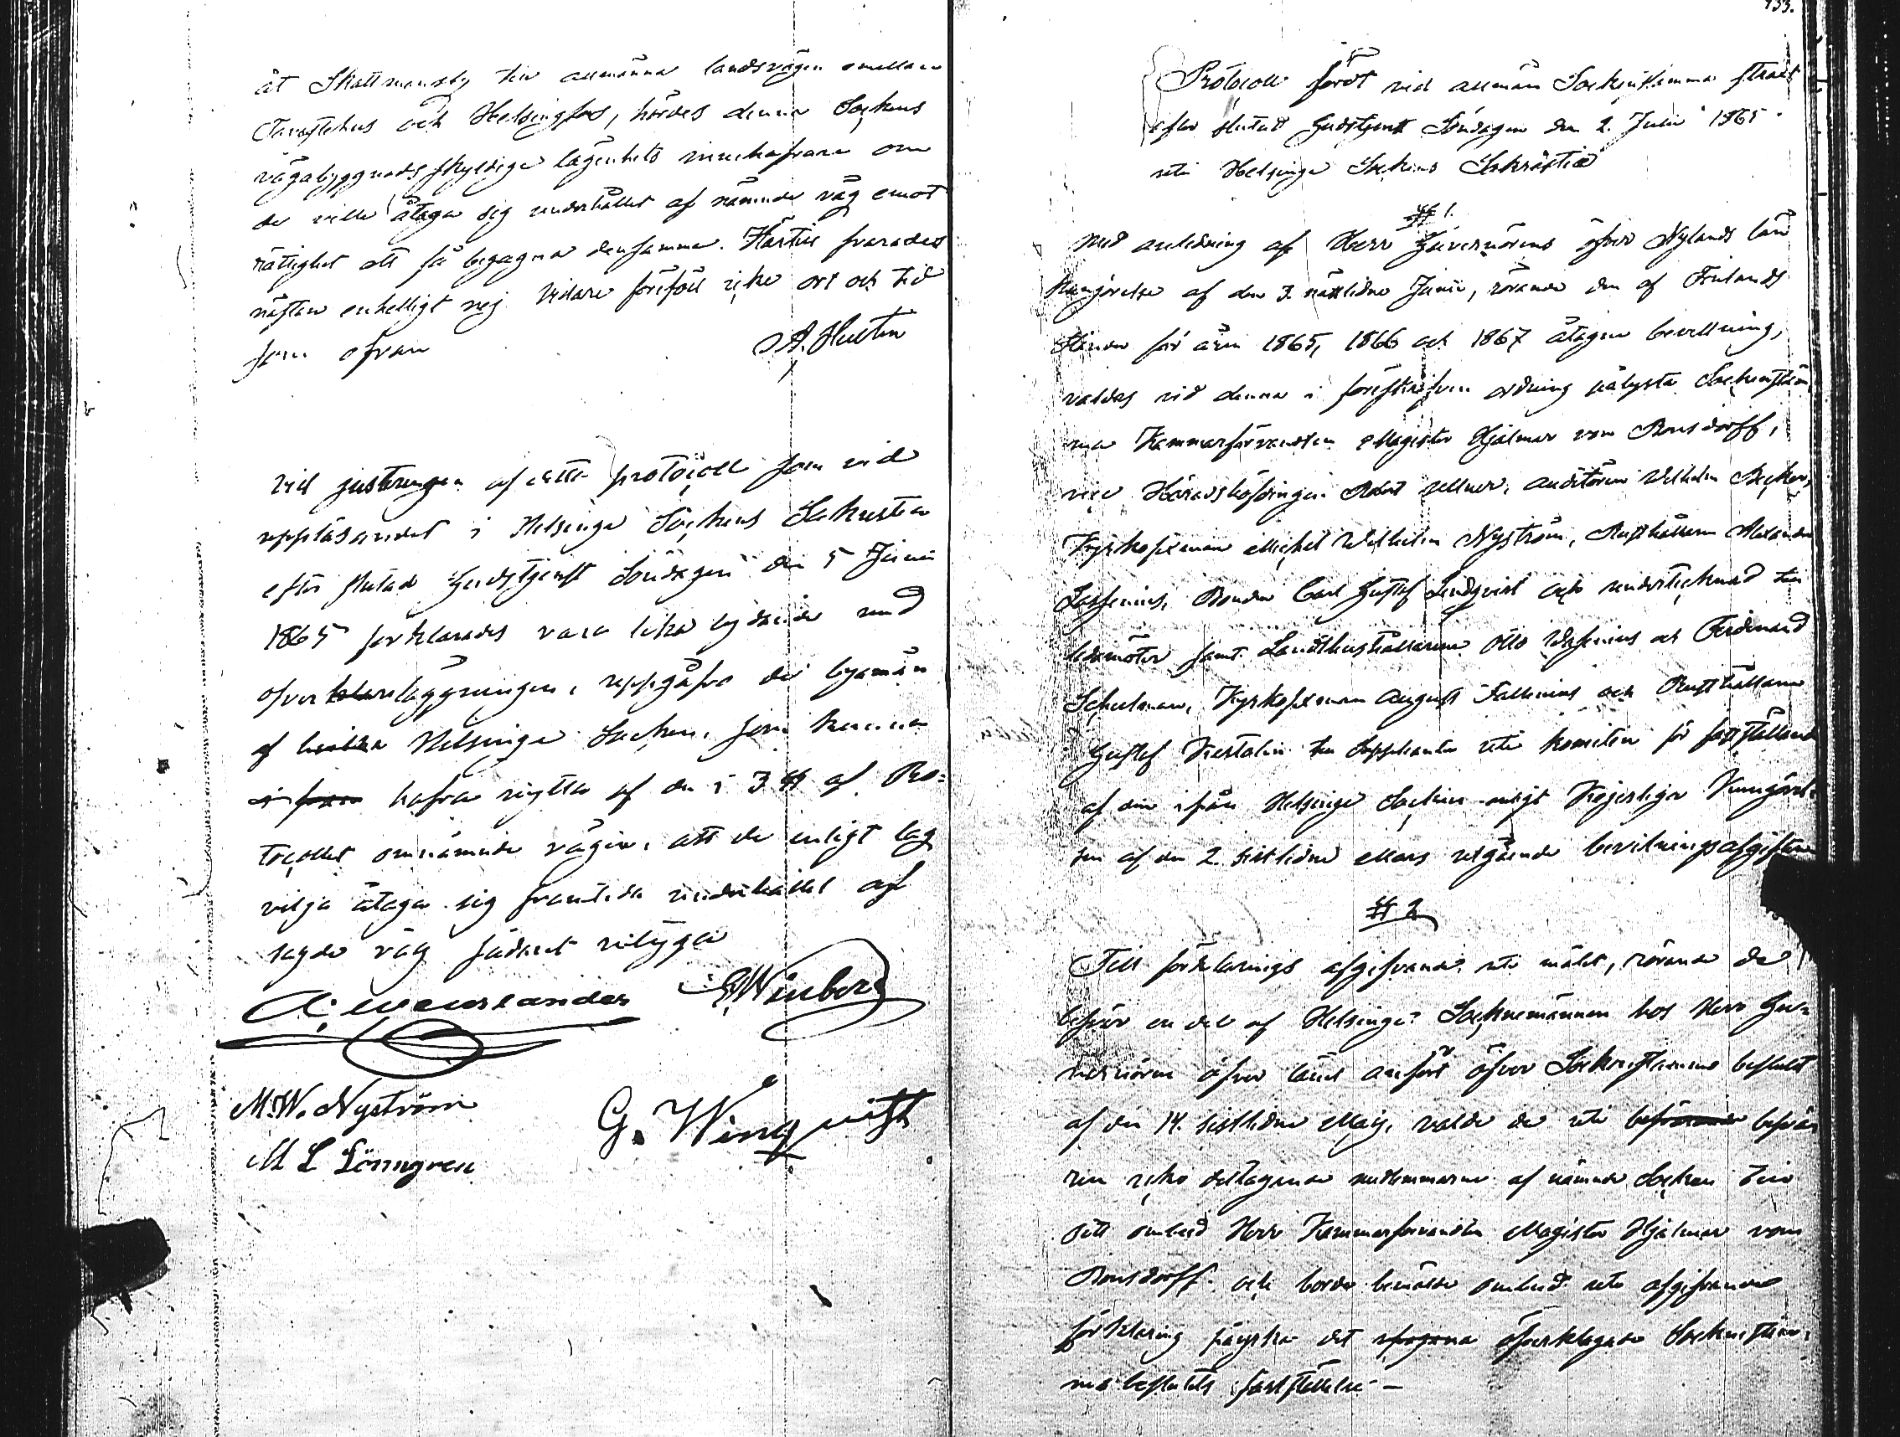 åt Skattmansby till allmänna landsvägen emellan
Tavastehus och Helsingfors, hördes denna Sockens
vägabyggnads skyldige lägenhets innehafvare om
de ville åtaga sig underhållet af nämnde väg emot
rättighet att få begagna densamma. Härtill svarades
nästan enhelligt nej Vidare föreföll icke ort och tid
som ofvan
A. Hultin
Vid justeringen af detta protocoll som vid
uppläsandet i Helsinge Sockens Sakristia
efter slutad Gudstjenst Söndagen den 5 Junii
1865 förklarades vara lika lydande med
öfverläggningen, uppgåfvo de byamän
af Helsinge Socken, som kunna
hafva nytta af den i 3 § af Pro-
tocollet omnämnde vägen, att de enligt lag
vilja åtaga sig framtida underhållet af
sagde väg sådant intyga
A. Weurlander E. Winberg
M. W. Nyström
G. Winqvist
M L Lönngren
133.
Protocoll fördt vid allmän Sockenstämma straxt
efter slutad Gudstjenst Söndagen den 2. Julii 1865
uti Helsinge Sockens Sakristia
§ 1.
Med anledning af Herr Guvernörens öfver Nylands län
Kungörelse af den 3. nästlidne Junii, rörande den af Finlands
Ständer för åren 1865, 1866 och 1867 åtagne bevillning,
valdes vid denna i föreskrifven ordning pålysta Sockenstäm
ma Kammarförvandten Magister Hjalmar von Bonsdorff,
vice Häradshöfdingen Robert Mellner, auditören Wilhelm Becker,
Kyrkofixman Michel Wilhelm Nyström, Rusthållaren Alexander
Bonden Carl Gustaf Lindqvist och undertecknad till
ledamöter samt Landthushållaren Otto och Ferdinand
Schulman, Kyrkofixman August Fallenius och Rusthållaren
Gustaf till Suppleanter uti komitén för fastställande
af den ifrån Helsinge Socken enligt Kejserliga Kungörel-
sen af den 2. sistlidne Mars utgående bevillningsafgiften
§ 2
Till förklarings afgifvande uti målet, rörande de
besvär en del af Helsinge Socknemännen hos Herr Gu-
vernören öfver länet anfört öfver Sockenstämmo beslutet
af den 14. sistlidne Maji, valde de uti besvä
ren icke deltagande medlemmarne af nämnde Socken till
sitt ombud Herr Kammarförvandten Magister Hjalmar von
Bonsdorff och borde bemälde ombud uti afgifvande
förklaring påyrka det öfverklagade Sockenstäm-
mo beslutets fastställelse –